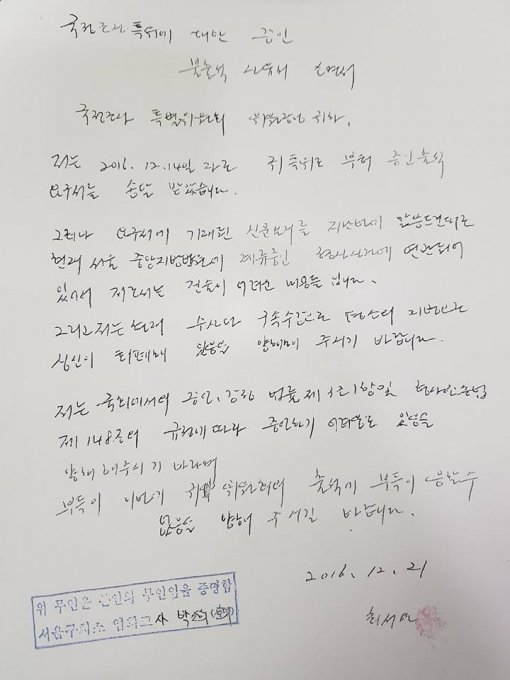 국정조사 특위에 대한 증인
불출석 사유서 소명서
국정조사 특별위원회 위원장님 귀하.
저는 2016. 12. 14일 자로 귀 특위로 부터 증인출석
요구서를 송달 받았습니다.
그러나 요구서에 기재된 신문요지를 지난번에 말씀드린대로
현재 서울 중앙지방법원에 계류중인 형사사건에 연관되어
있어서 저로서는 진술이 어려운 내용들 입니다.
그리고 저는 현재 수사와 구속수감으로 평소의 지병으로
심신이 피폐해 있음을 양해해 주시기 바랍니다.
저는 국회에서의 증언, 감정 법률 제3조1항 및 형사소송법
제148조의 규정에 따라 증언하기 어려움을 있음을
양해 해주시기 바라며
부득이 이번 귀 위원회의 출석키 부득이 응할수
없음을 양해 주시길 바랍니다.
2016. 12. 21
최서원
위 무인은 본인의 무인임을 증명함
서울구치소 교사 박